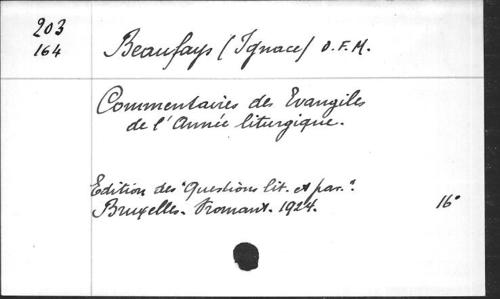 203
164
Beaufays (Ignace) O.F.M.
Commentaires des Evangiles
de l'Année liturgique.
Edition des "Questions lit. et par.".
Bruxelles. Vromant. 1924. 16°